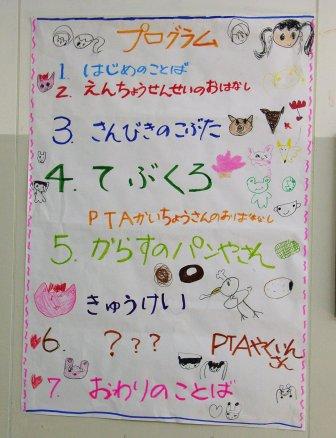 プログラム
1. はじめのことば
2. えんちょうせんせいのおはなし
3. さんびきのこぶた
4. てぶくろ
PTAかいちょうさんのおはなし
5. からすのパンやさん
きゅうけい
6. ? ? ? PTAやくいんさん
7. おわりのことば